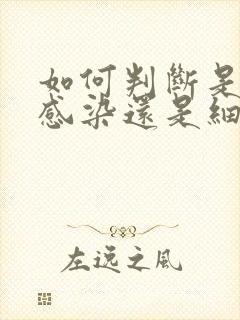 如何判斷是
感染還是細
左逸之風